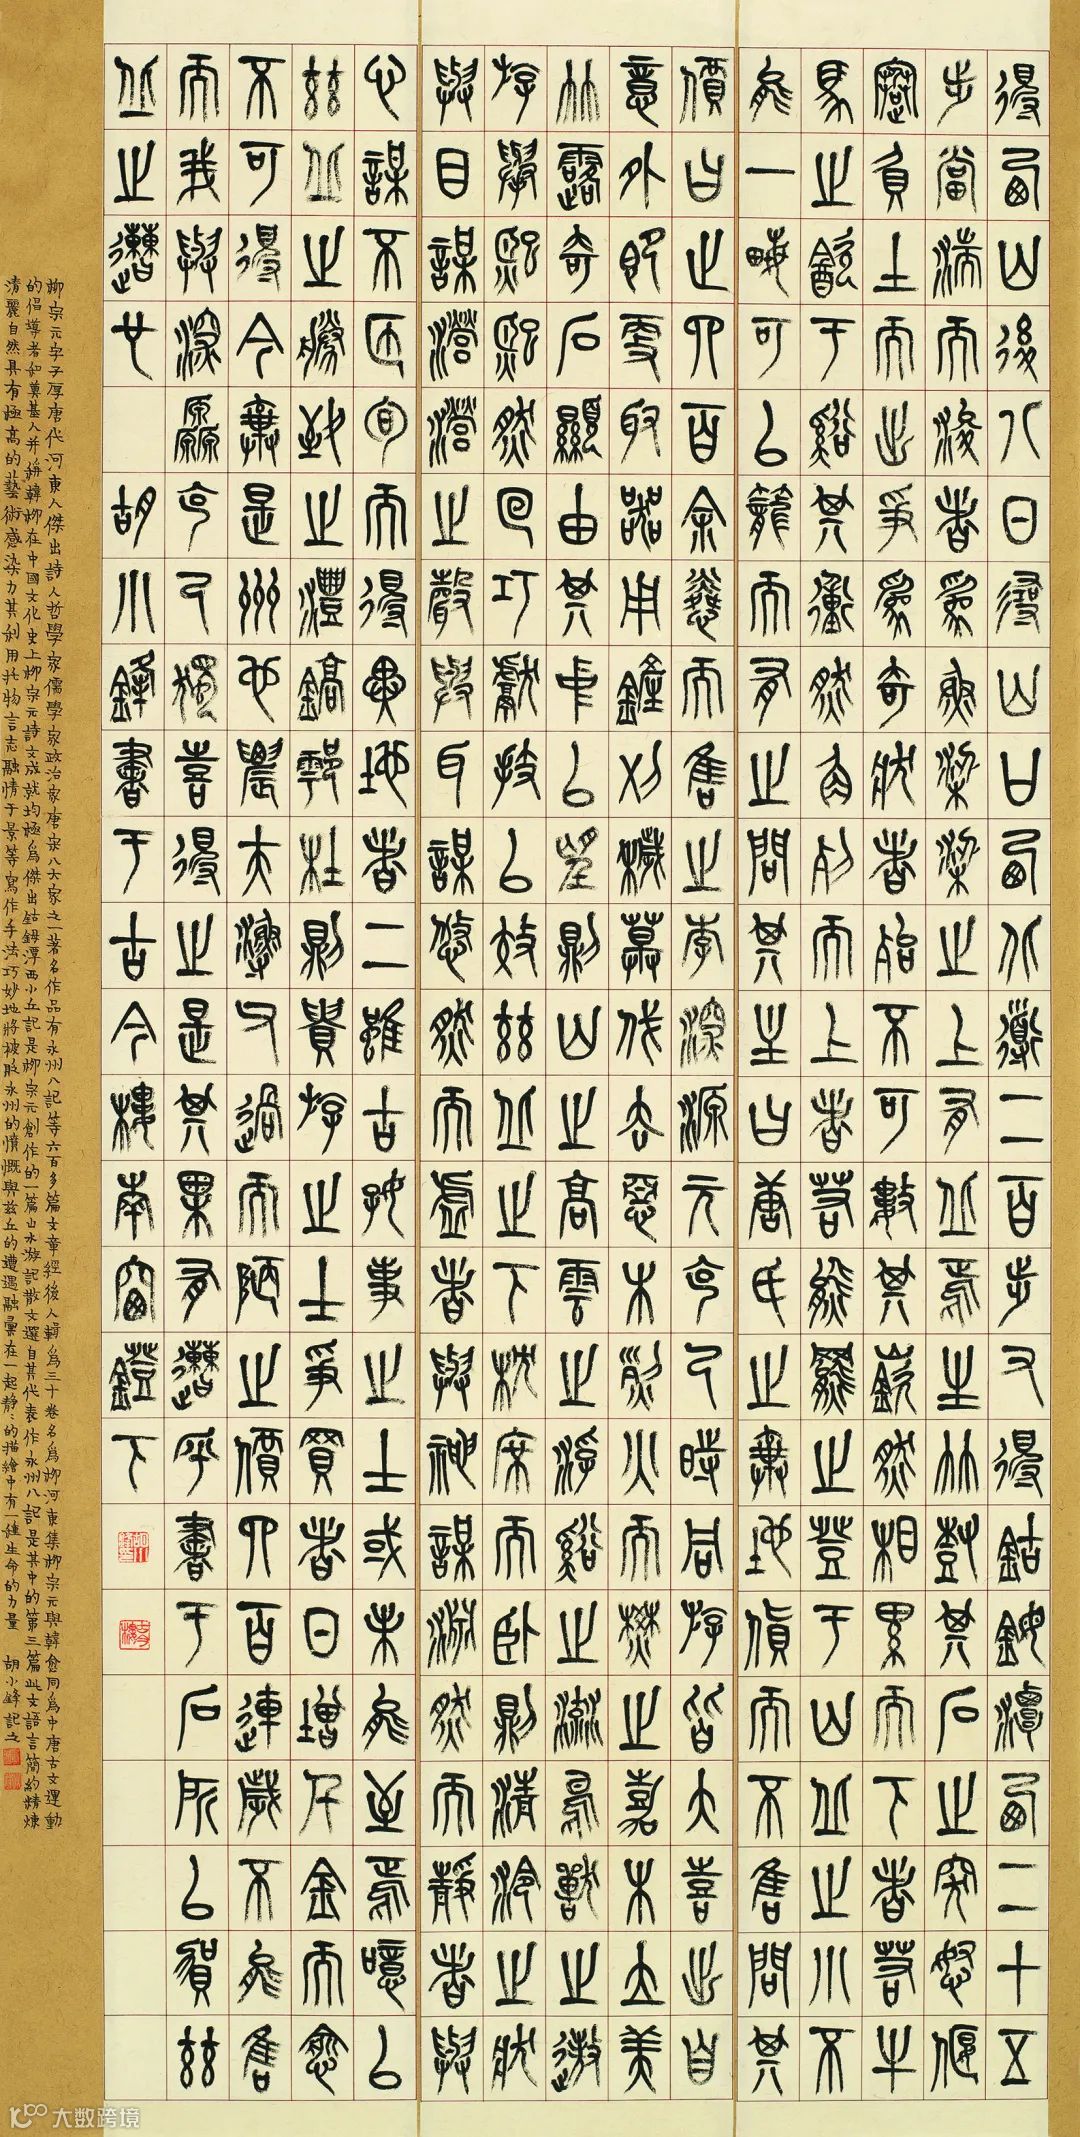 得西山後八日尋山口西北道二百步又得鈷鉧潭西二十五
步當湍而浚者為魚梁梁之上有丘焉生竹樹其石之突怒偃
蹇負土而出爭為奇狀者殆不可數其嶔然相累而下者若牛
馬之飲于谿其衝然角列而上者若熊羆之登于山丘之小不
能一畝可以籠而有之問其主曰唐氏之棄地貨而不售問其
價曰止四百余憐而售之李深源元克己時同游皆大喜出自
意外即更取器用鏟刈穢草伐去惡木烈火而焚之嘉木立美
竹露奇石顯由其中以望則山之高雲之浮谿之流鳥獸之遨
游舉熙熙然回巧獻技以效茲丘之下枕席而臥則清泠之狀
與目謀瀯瀯之聲與耳謀悠然而虛者與神謀淵然而靜者與
心謀不匝旬而得異地者二雖古好事之士或未能至焉噫以
茲丘之勝致之灃鎬鄠杜則貴游之士爭買者日增千金而愈
不可得今棄是州也農夫漁父過而陋之價四百連歲不能售
而我與深源克己獨喜得之是其果有遭乎書于石所以賀茲
丘之遭也 胡小鋒書于古今樓南窗鐙下
柳宗元字子厚唐代河東人傑出詩人哲學家儒學家政治家唐宋八大家之一著名作品有永州八記等六百多篇文章經後人輯為三十卷名為柳河東集柳宗元與韓愈同為中唐古文運動
的倡導者和奠基人并稱韓柳在中國文化史上柳宗元詩文成就均極為傑出鈷鉧潭西小丘記是柳宗元創作的一篇山水游記散文選自其代表作永州八記是其中的第三篇此文語言簡約精煉
清麗自然具有極高的藝術感染力其利用托物言志融情于景等寫作手法巧妙地將被貶永州的憤慨與茲丘的遭遇融彙在一起靜靜的描繪中有一種生命的力量 胡小鋒記之
大数跨境